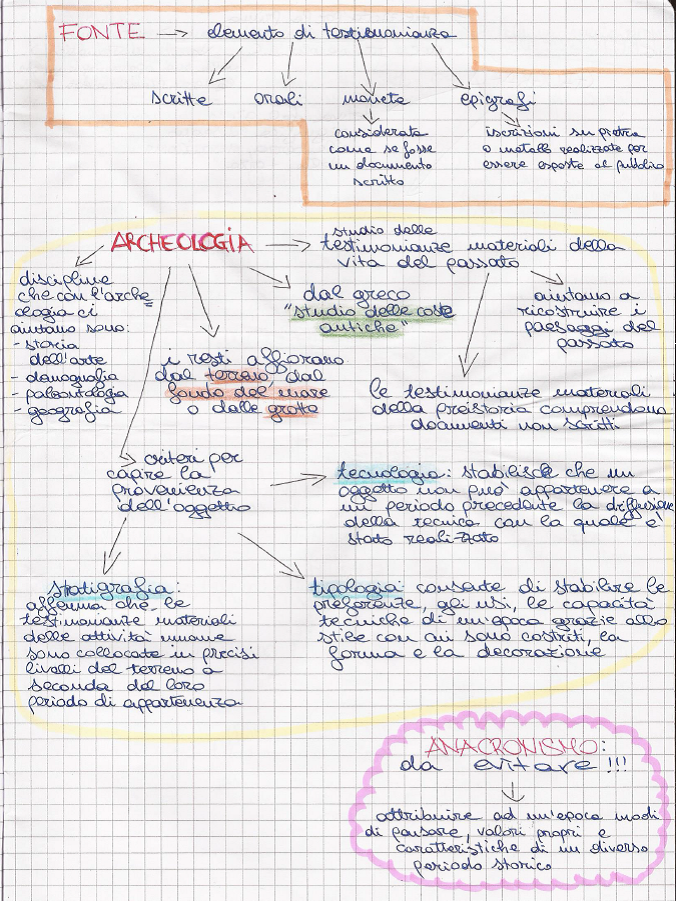 FONTE → elemento di testimonianza
scritte orali monete epigrafi
considerate
come se fosse
un documento
scritto
iscrizioni su pietra
o metallo realizzate per
essere esposte al pubblico
ARCHEOLOGIA → studio delle
testimonianze materiali della
vita del passato
discipline
che con l'arche
ologia ci
aiutano sono:
- storia
dell'arte
- demografia
- paleontologia
- geografia
dal greco
"studio delle cose
antiche"
aiutano a
ricostruire i
paesaggi del
passato
i resti affiorano
dal terreno, dal
fondo del mare
o dalle grotte
le testimonianze materiali
della preistoria comprendono
documenti non scritti
criteri per
capire la
provenienza
dell'oggetto
tecnologia: stabilisce che un
oggetto non può appartenere a
un periodo precedente la diffusione
della tecnica con la quale è
stato realizzato
stratigrafia:
afferma che le
testimonianze materiali
delle attività umane
sono collocate in precisi
livelli del terreno a
seconda del loro
periodo di appartenenza
tipologia: consente di stabilire le
preferenze, gli usi, le capacità
tecniche di un'epoca grazie allo
stile con cui sono costruiti, la
forma e la decorazione
ANACRONISMO:
da evitare!!!
attribuire ad un'epoca modi
di pensare, valori propri e
caratteristiche di un diverso
periodo storico